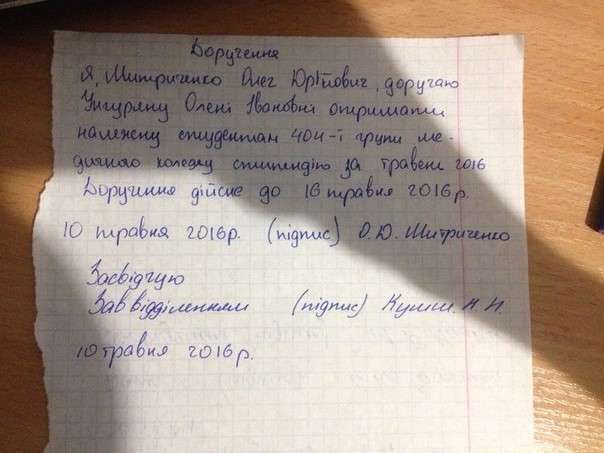 Доручення
Я, Митриченко Олег Юрійович, доручаю
Унгуряну Олені Івановні отримати
належну студентам 404-ї групи ме-
дичного коледжу стипендію за травень 2016
Доручення дійсне до 16 травня 2016р.
10 травня 2016р. (підпис) О.Ю. Митриченко
Засвідчую
Зав відділенням (підпис) Н.Н.
10 травня 2016р.